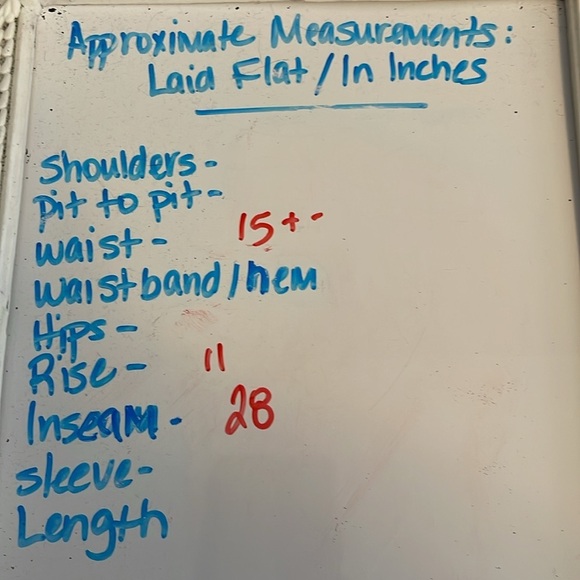 Approximate Measurements:
Laid Flat / In Inches
Shoulders -
pit to pit -
waist - 15 + -
waistband / hem
Hips -
Rise - 11
Inseam - 28
sleeve -
Length